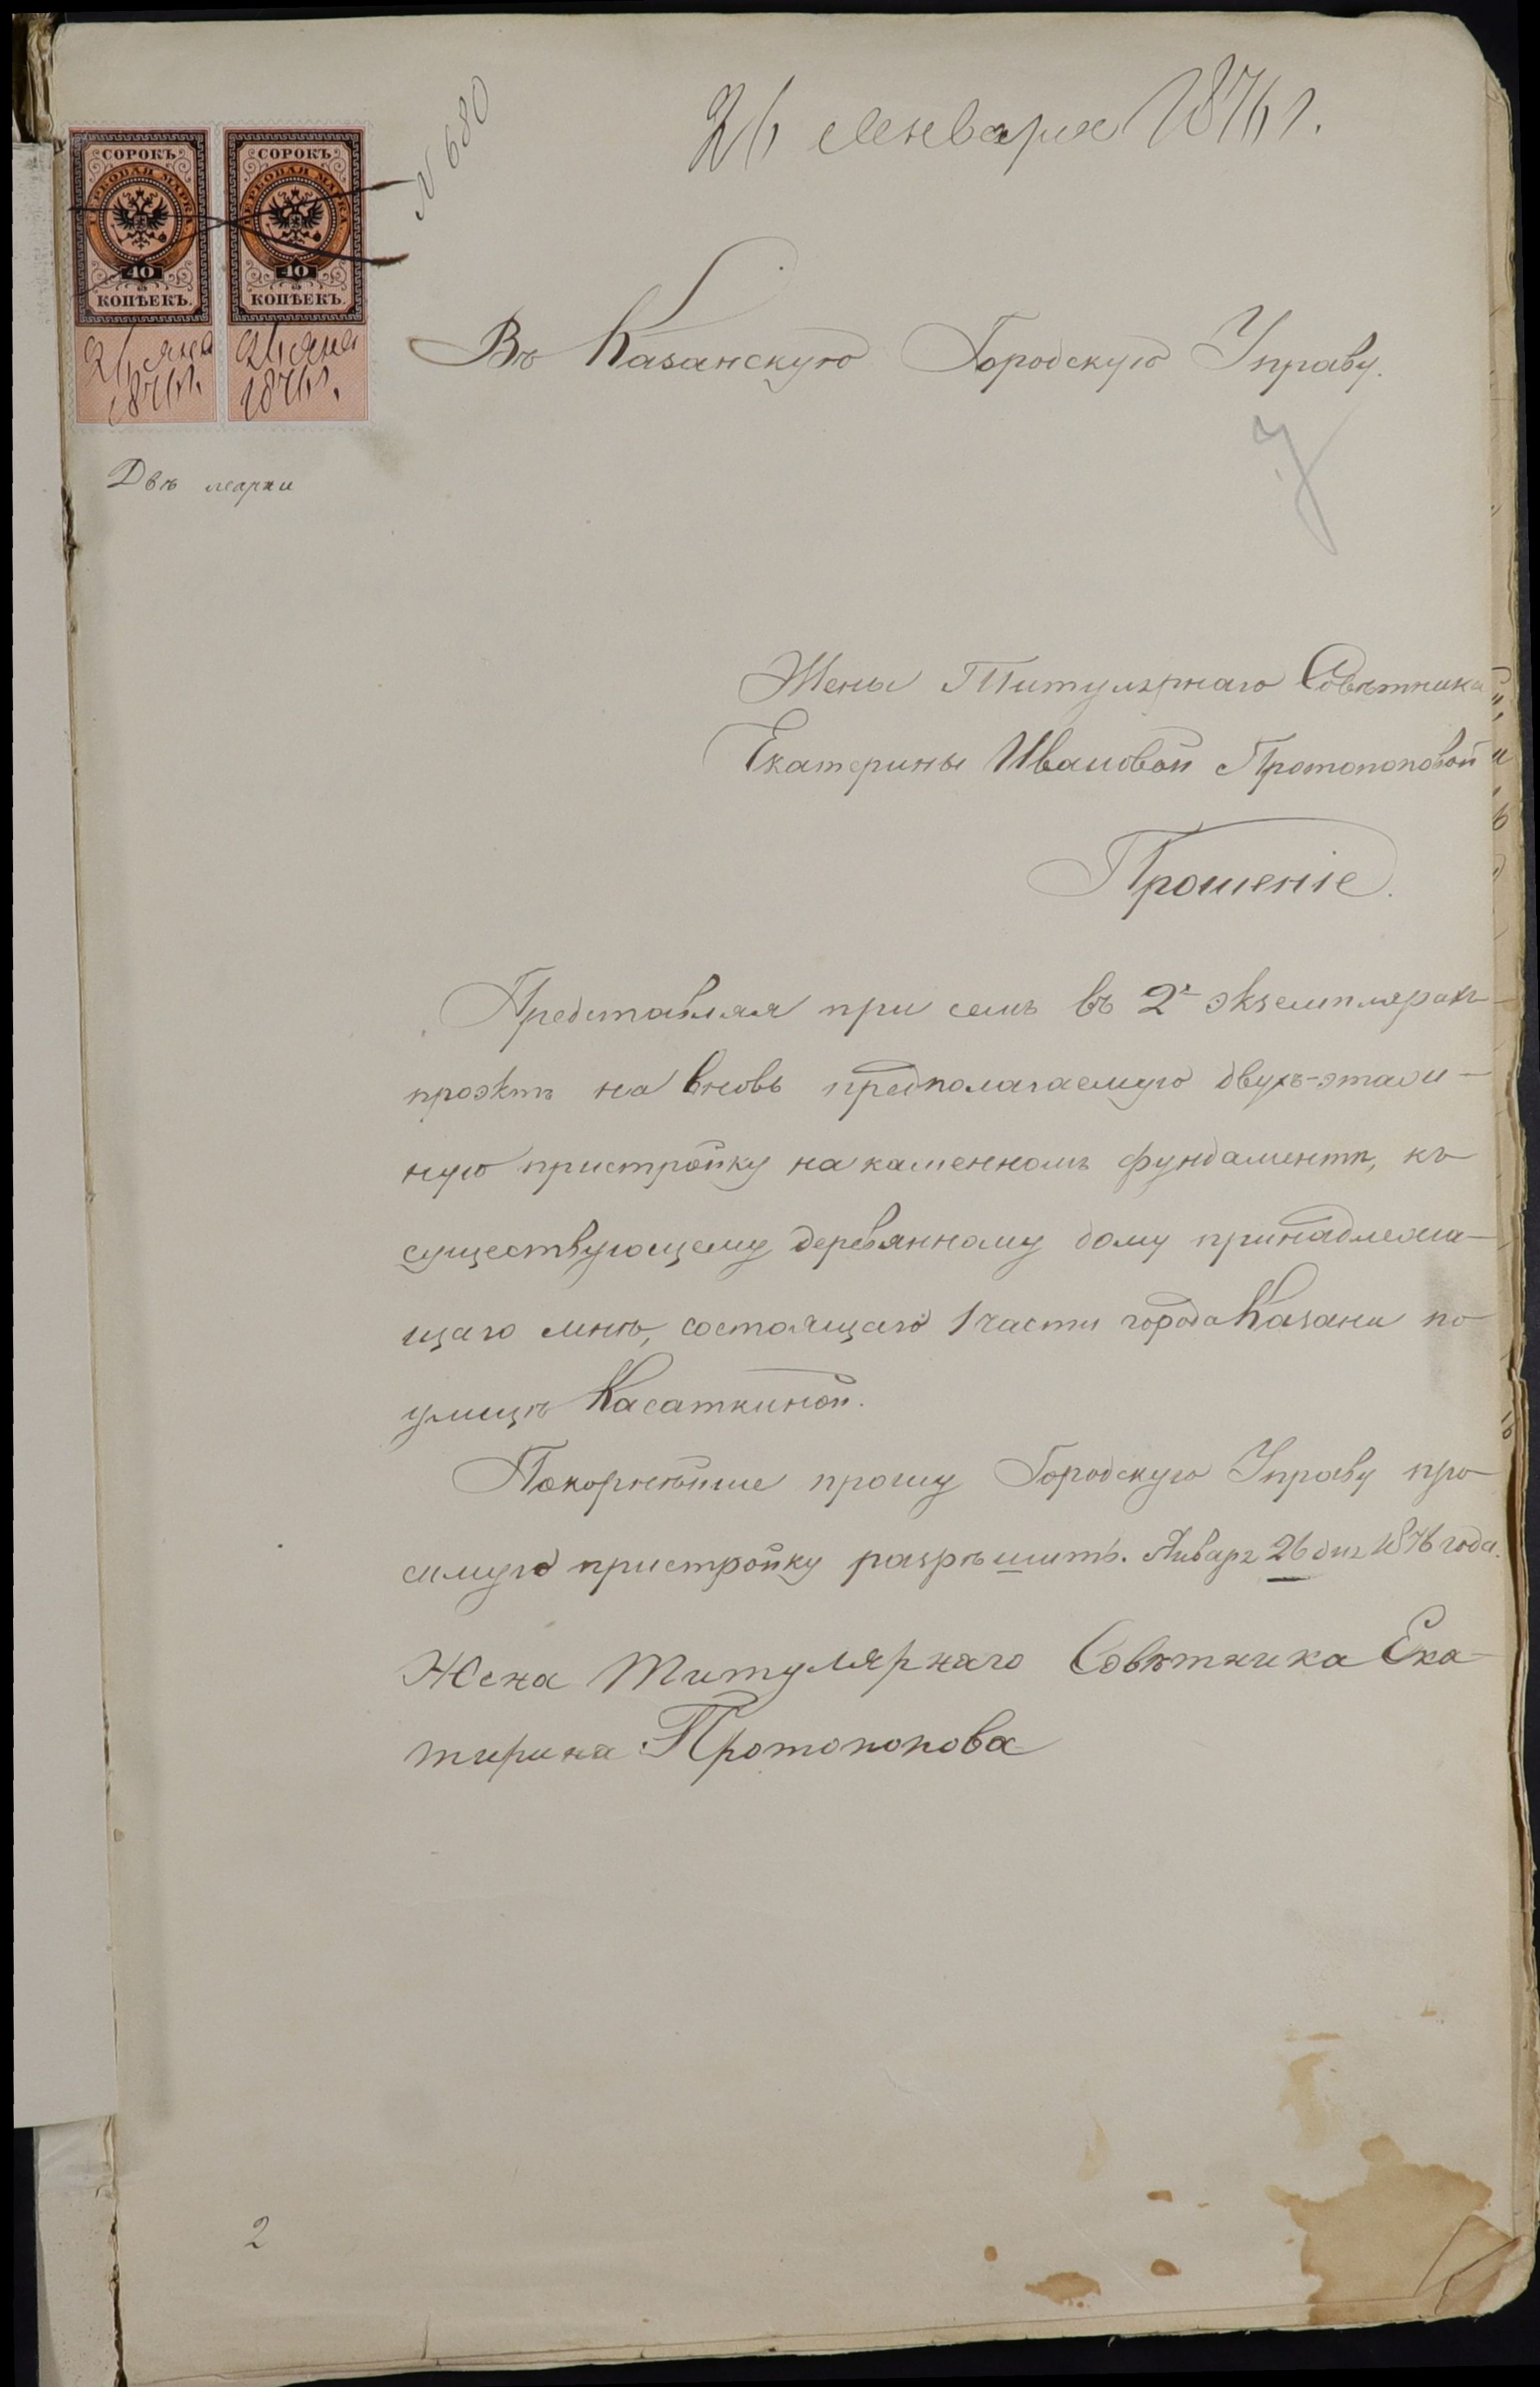 26 Января 1876 г.
N 680
СОРОКЪ
ГЕРБОВАЯ МАРКА
40
КОПѢЕКЪ.
26 янв
1876 г.
СОРОКЪ
ГЕРБОВАЯ МАРКА
40
КОПѢЕКЪ.
26 янв
1876 г.
Двѣ марки
Въ Казанскую Городскую Управу.
Жены Титулярнаго Совѣтника
Екатерины Ивановой Протопоповой
Прошеніе.
Представляя при семъ въ 2х экземплярахъ
проэктъ на вновь предполагаемую двухъ-этаж-
ную пристройку на каменномъ фундаментѣ, къ
существующему деревянному дому принадлежа-
щаго мнѣ, состоящаго 1 части города Казани по
улицѣ Касаткиной.
Покорнѣйше прошу Городскую Управу про-
симую пристройку разрѣшить. Января 26 дня 1876 года.
Жена Титулярнаго Совѣтника Ека-
тирина Протопопова
2